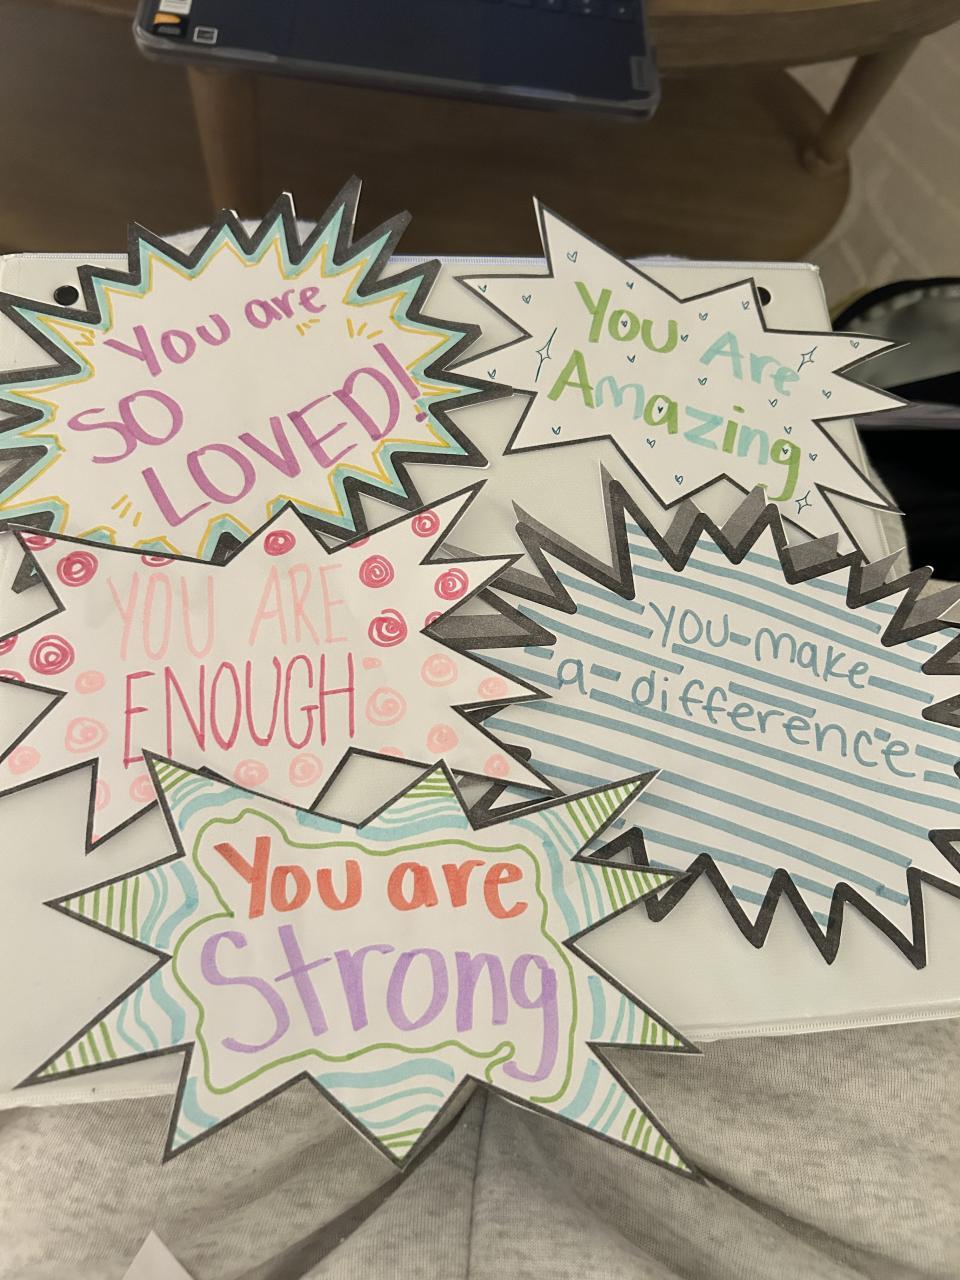 You are
SO
LOVED!
You Are
Amazing
YOU ARE
ENOUGH
you make
a difference
You are
Strong